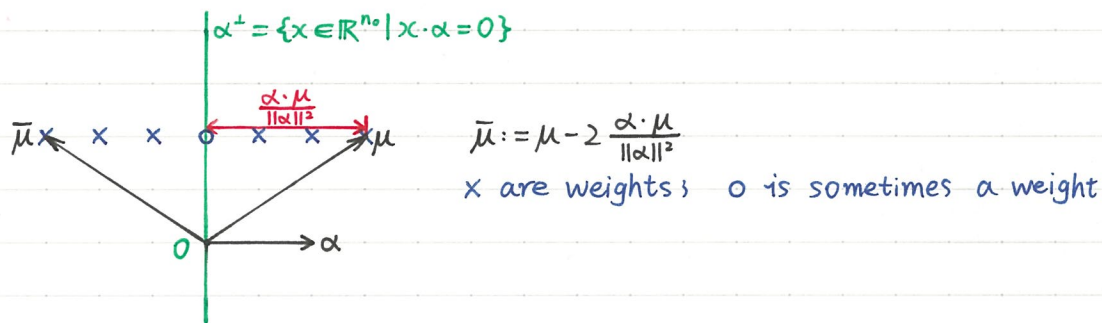 α⊥ = {x ∈ ℝⁿ⁰ | x · α = 0}
α · μ / ||α||²
μ̄ μ
μ̄ := μ − 2 α · μ / ||α||²
x are weights; o is sometimes a weight
0 α